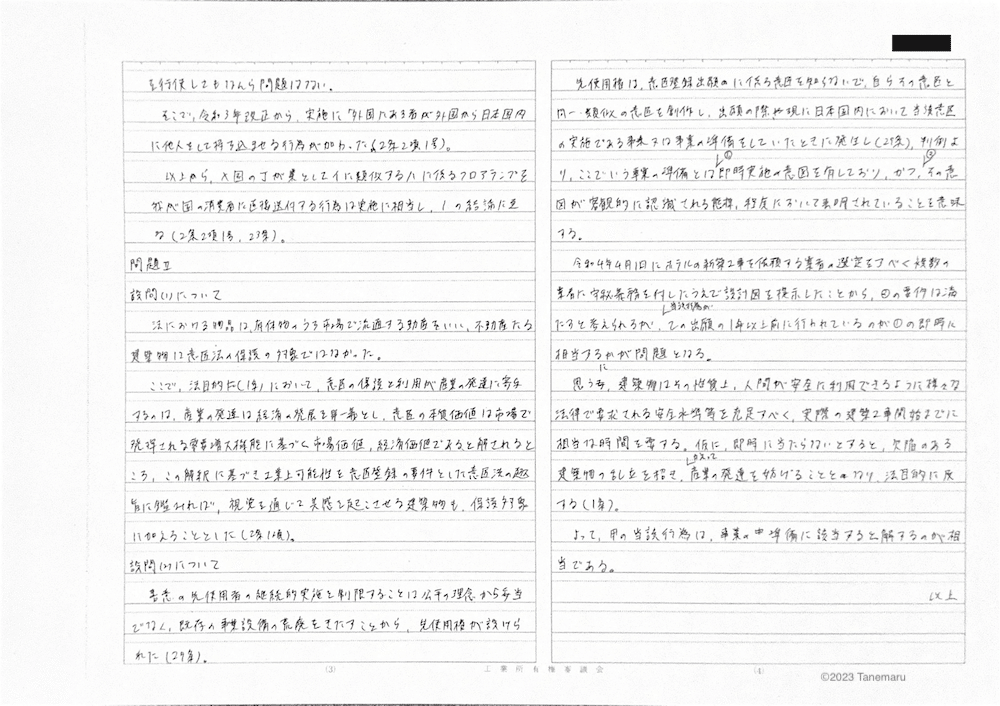 を行使してもなんら問題はない。
そこで、令和3年改正から、実施に「外国にある者が外国から日本国内
に他人をして持ち込ませる行為が加わった(2条2項1号)。
以上から、X国の丁が業としてイに類似するハに係るフロアランプを
我が国の消費者に直接送付する行為は実施に相当し、1の結論に至
る(2条2項1号、23条)。
問題Ⅱ
設問(1)について
法における物品は、有体物のうち市場で流通する動産をいい、不動産たる
建築物は意匠法の保護の対象ではなかった。
ここで、法目的(1条)において、意匠の保護と利用が産業の発達に寄与
するのは、産業の発達は経済の発展を第一義とし、意匠の本質価値は市場で
発揮される需要増大機能に基づく市場価値、経済価値であると解されると
ころ、この解釈に基づき工業上可能性を意匠登録の要件とした意匠法の趣
旨に鑑みれば、視覚を通じて美感を起こさせる建築物も、保護対象
に加えることとした(2条1項)。
設問(2)について
善意の先使用者の継続的実施を制限することは公平の理念から妥当
でなく、既存の事業設備の荒廃をきたすことから、先使用権が設けら
れた(29条)。
(3)
工業所有権審議会
先使用権は、意匠登録出願に係る意匠を知らないで、自らその意匠と
同一類似の意匠を創作し、出願の際に現に日本国内において当該意匠
の実施である事業又は事業の準備をしていたときに発生し(29条)、判例よ
り、ここでいう事業の準備とは①即時実施の意図を有しており、かつ、②その意
図が客観的に認識される態様、程度において表明されていることを意味
する。
令和4年4月1日にホテルの新築工事を依頼する業者の選定をすべく複数の
業者に守秘義務を付したうえで設計図を提示したことから、②の要件は満
たすと考えられるが、当該行為が乙の出願の1年以上前に行われているのが①の即時に
相当するかが問題となる。
思うに、建築物はその性質上、人間が安全に利用できるように様々な
法律で要求される安全水準等を充足すべく、実際の建築工事開始までに
相当な時間を要する。仮に、即時に当たらないとすると、欠陥のある
建築物の乱立を招き、かえって産業の発達を妨げることとなり、法目的に反
する(1条)。
よって、甲の当該行為は、事業の準備に該当すると解するのが相
当である。
以上
(4)
©2023 Tanemaru